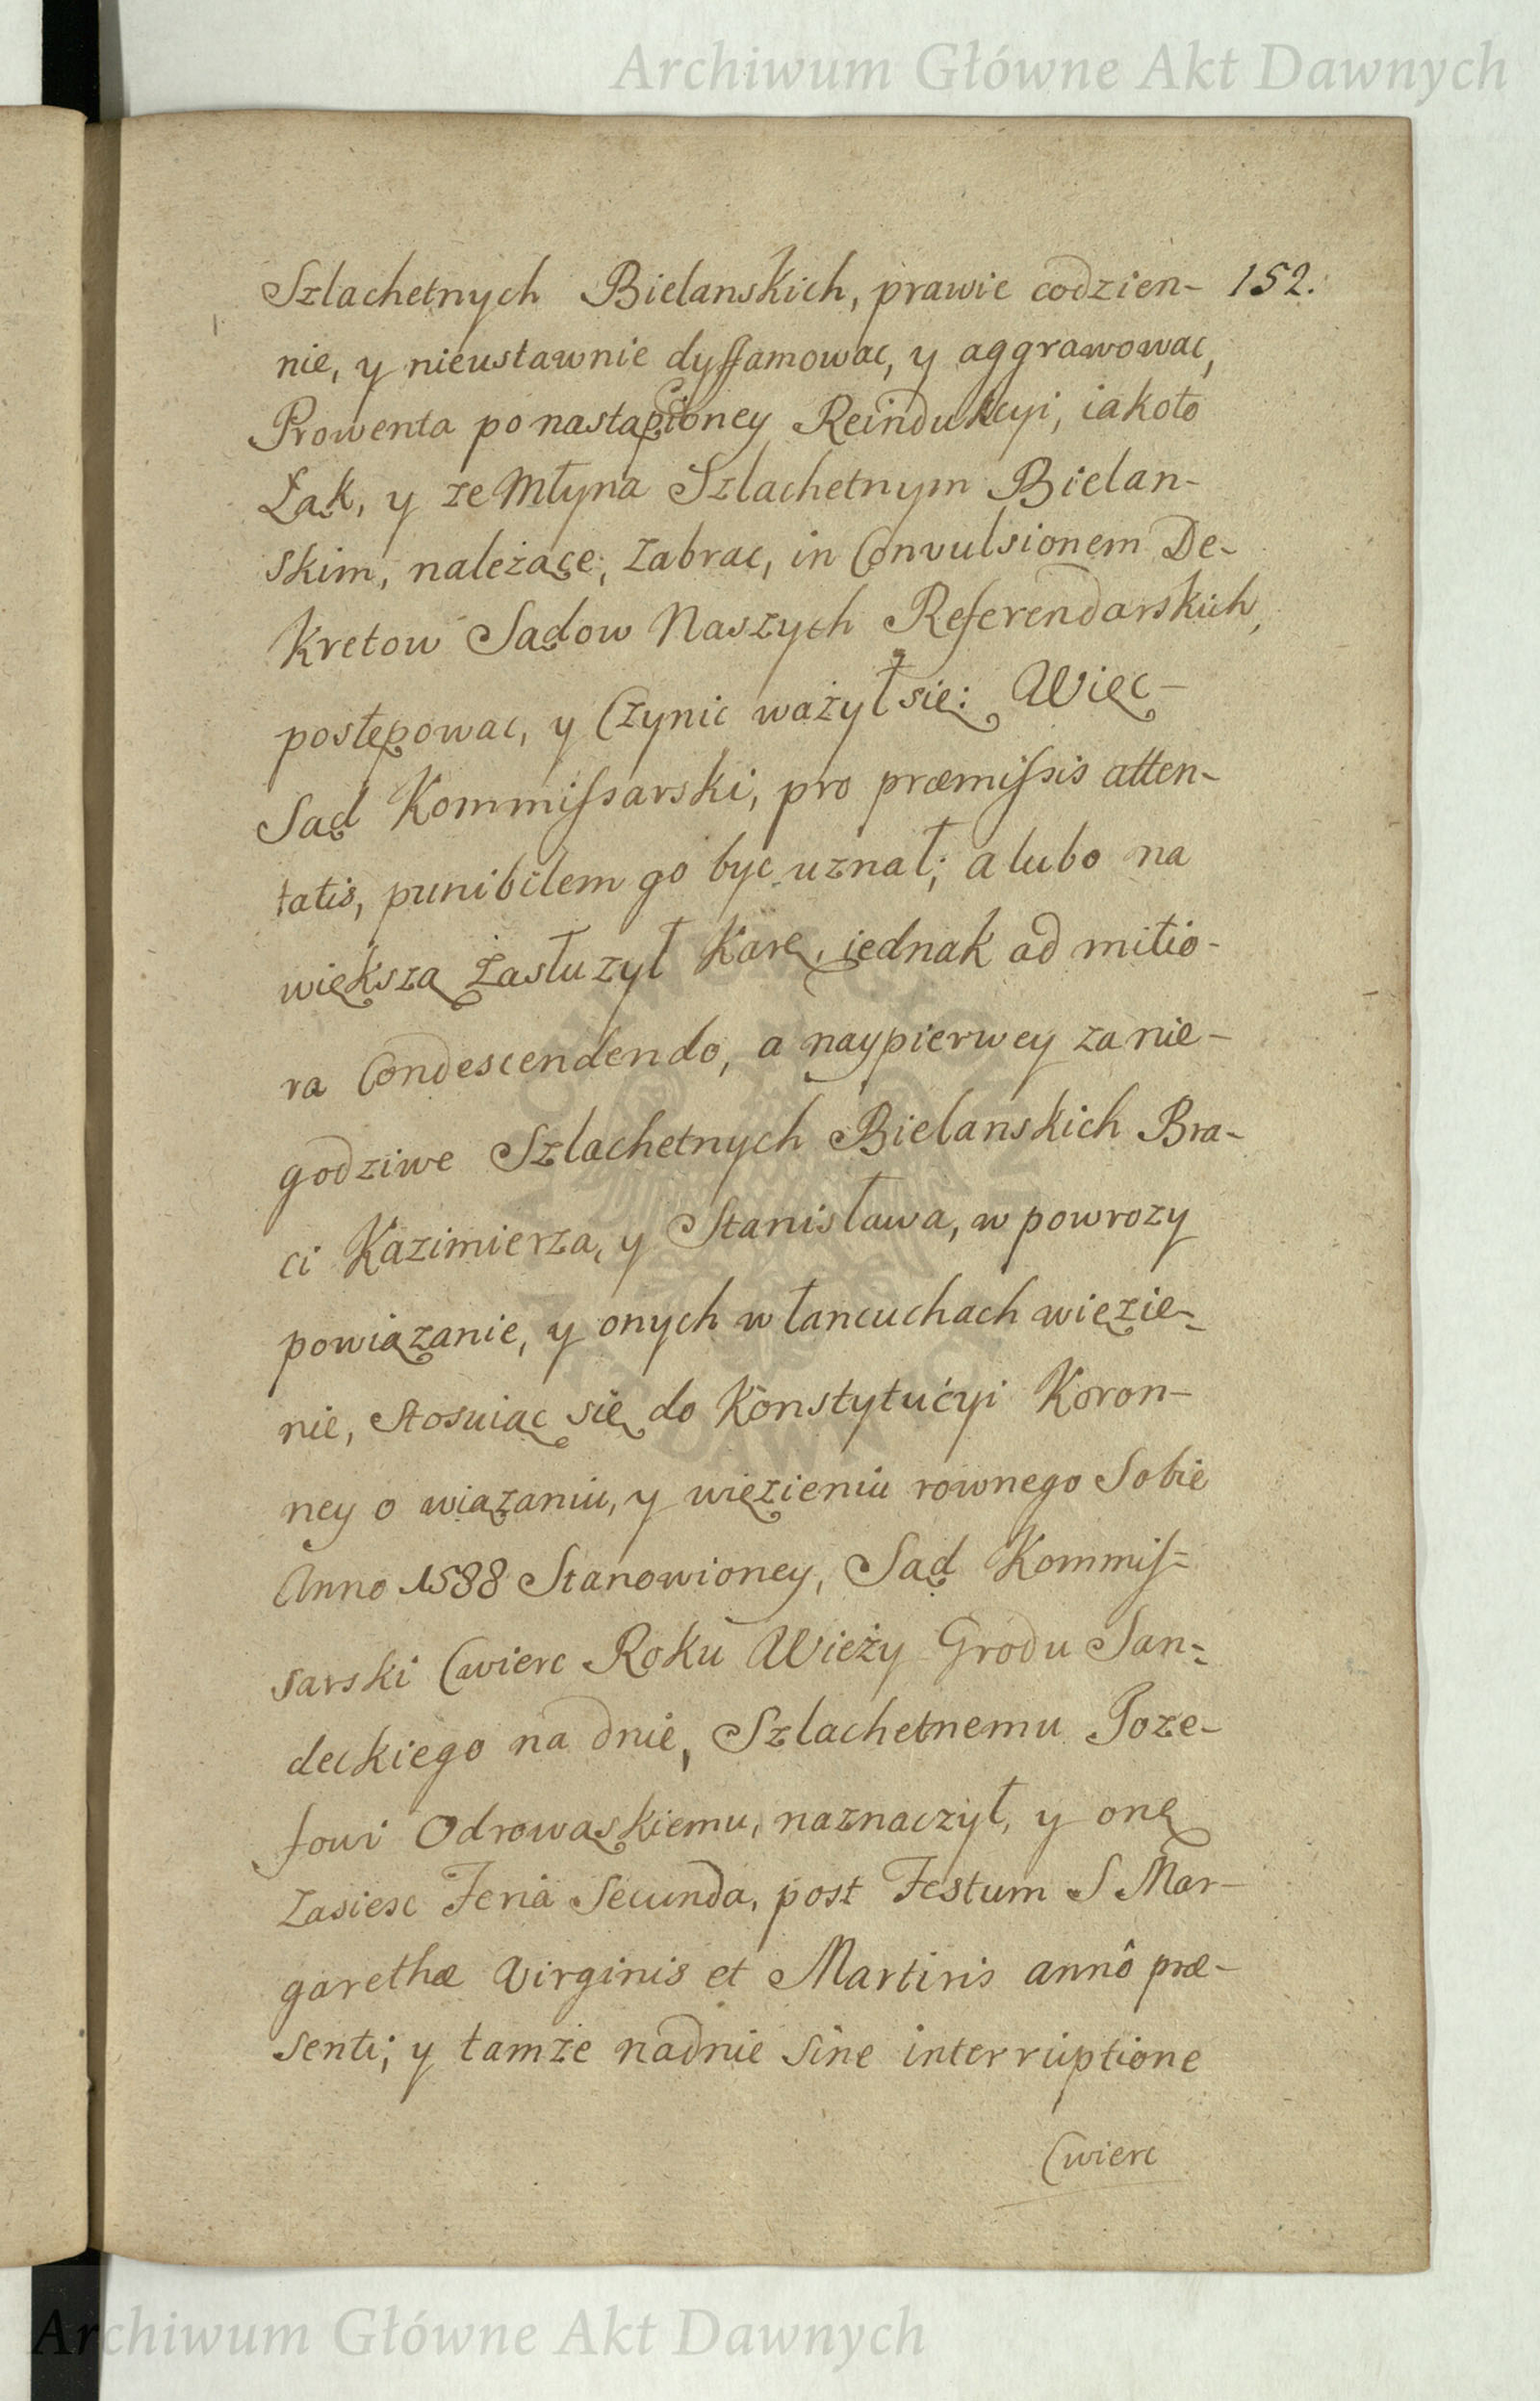 Archiwum Główne Akt Dawnych
Szlachetnych Bielanskich, prawie codzien- 152.
nie, y nieustawnie dyffamowac, y aggrawowac,
Prowenta po nastąpioney Reindukcyi, iakoto
Łąk, y ze Młyna Szlachetnym Bielan-
skim, należące, zabrac, in Convulsionem De-
kretow Sądow Naszych Referendarskich,
postępowac, y Czynic ważył się: Więc-
Sąd Kommissarski, pro præmissis atten-
tatis, punibilem go byc uznał; a lubo na
większą zasłużył Karę, iednak ad mitio-
ra Condescendendo, a naypierwey za nie-
godziwe Szlachetnych Bielanskich Bra-
ci Kazimierza, y Stanisława, w powrozy
powiązanie, y onych w łancuchach więzie-
nie, stosuiąc się do Konstytucyi Koron-
ney o wiązaniu, y więzieniu rownego Sobie
Anno 1588 Stanowioney, Sąd Kommis=
sarski Cwierc Roku Wieży Grodu San=
deckiego na dnie, Szlachetnemu Joze-
fowi Odrowąskiemu, naznaczył, y onę
zasiesc Feria Secunda, post Festum S Mar-
garethæ Virginis et Martiris annô præ-
senti; y tamze nadnie sine interruptione
Cwierc
ARCHIWUM GŁÓWNE AKT DAWNYCH
Archiwum Główne Akt Dawnych